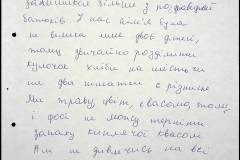 залишилося більше з по
батьків. У нас сім'я була
не велика лише двоє дітей,
тому звичайно розділили
кусочок хліба на шість чи
на два шматки є різниця
Ми траву цвіт, квасоля, тому
і досі не можу терпіти
запаху кислячої квасолі
Але не дивлячись на всі